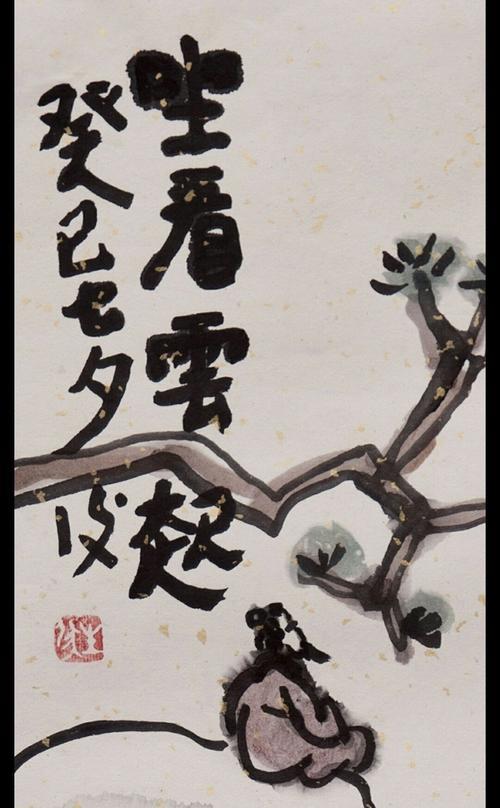 坐看雲起
癸巳七夕